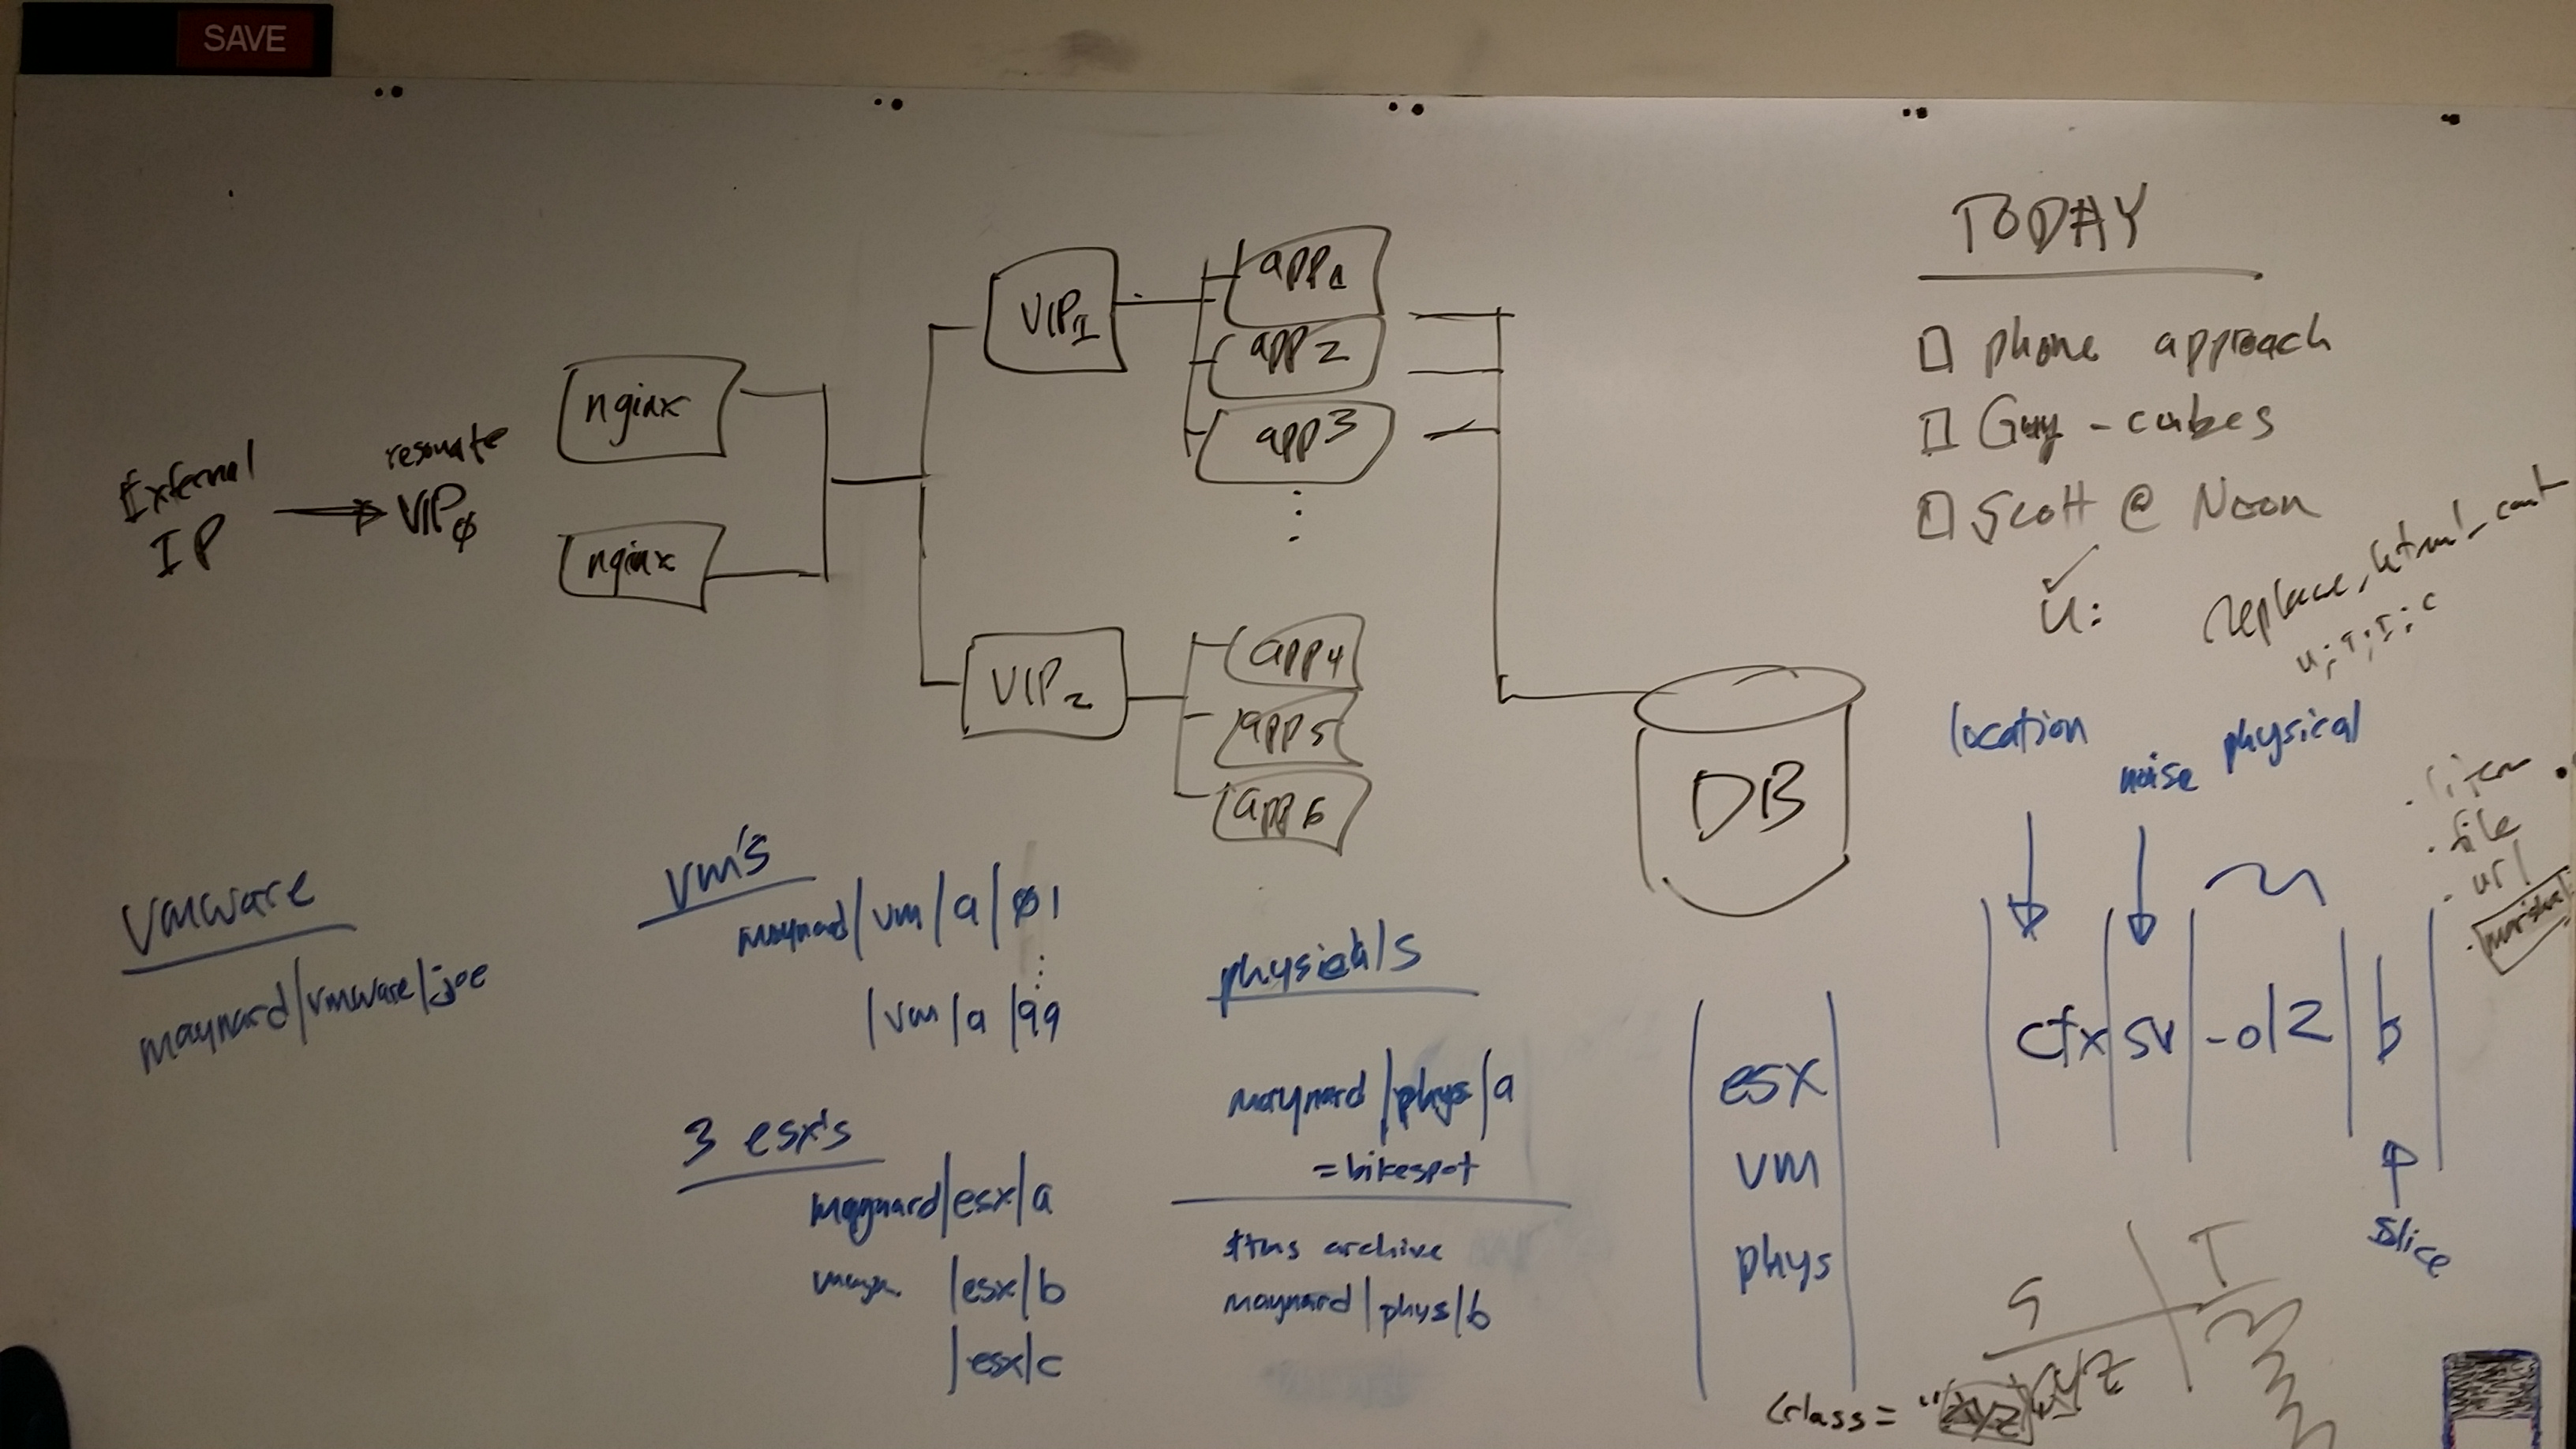 SAVE
External
IP
resonate
VIP0
nginx
nginx
VIP1
app1
app2
app3
VIP2
app4
app5
app6
DB
TODAY
phone approach
Guy - cubes
Scott @ Noon
U:
replace, html_cont
location
noise
physical
ctx|sv|-012|b
slice
. item
. file
. url
vmware
maynard/vmware/joe
vm's
maynard/vm/a/01
/vm/a/99
3 esx's
maynard/esx/a
/esx/b
/esx/c
physicals
maynard/phys/a
= bikespot
archive
maynard/phys/b
esx
vm
phys
S T
class = "xyz xyz